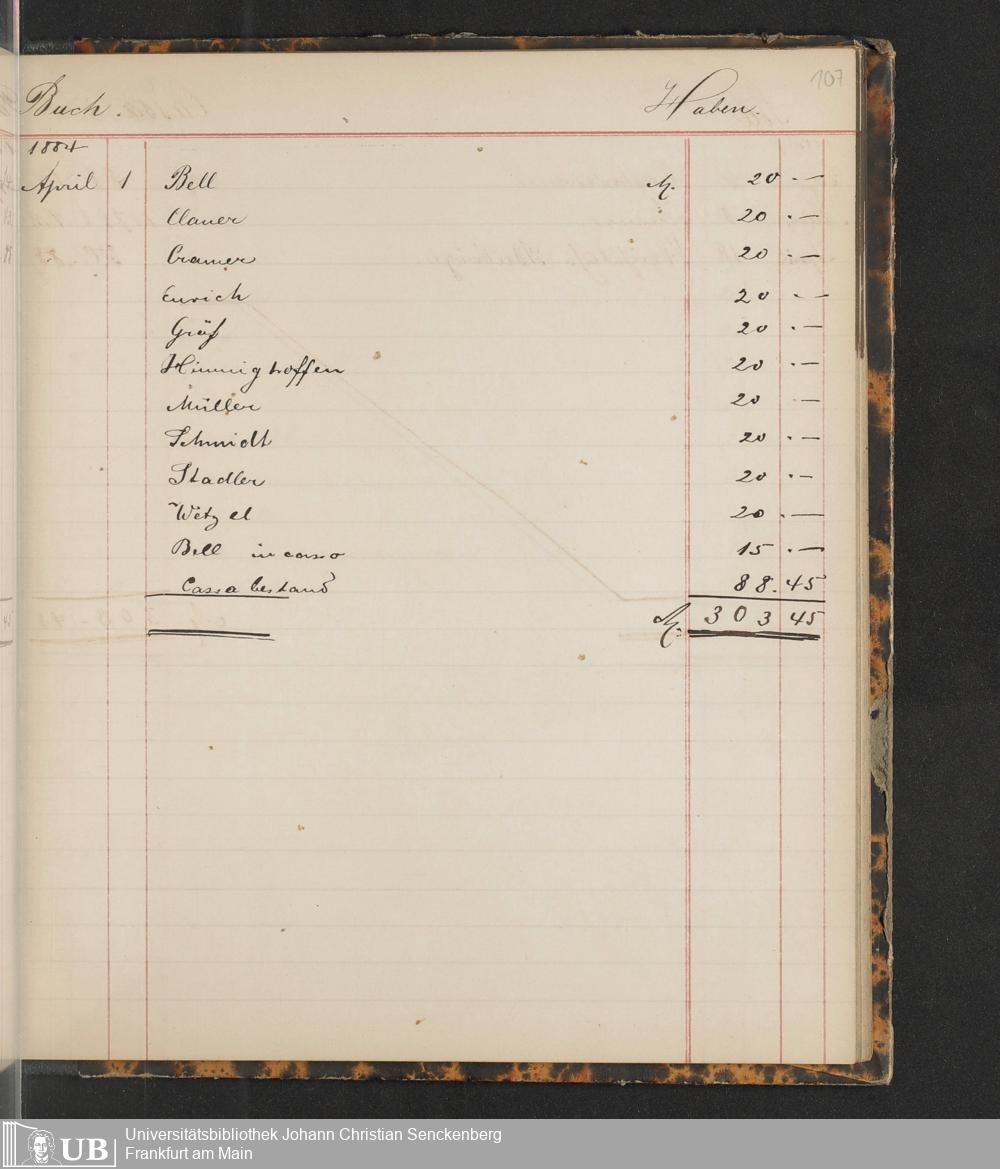 107
Buch. Haben.
1884
April 1 Bell M. 20 . —
Clauer 20 . —
Cramer 20 . —
Eurich 20 . —
Gräf 20 . —
Hinnighoffen 20 . —
Müller 20 . —
Schmidt 20 . —
Stadler 20 . —
Wetzel 20 . —
Bell incasso 15 . —
Cassabestand 88.45
M. 303 45
UB Universitätsbibliothek Johann Christian Senckenberg
Frankfurt am Main